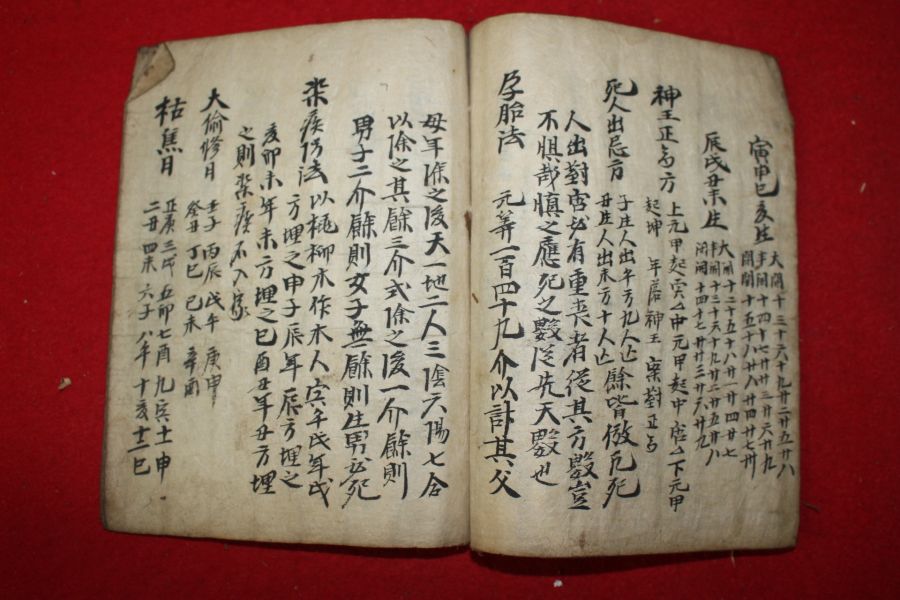 寅申巳亥生
大開十三十六十九廿二廿五廿八
半開十四十七廿廿三廿六廿九
閉開十五十八廿八廿四廿七卅
辰戌丑未生
大開十二十五十八廿一廿四廿七
半開十三十六十九廿二廿五廿八
閉開十四十七廿廿三廿六廿九
神王正方 上元甲起 中元甲起中宮 下元甲
起坤 年 神王 對正
死人出忌方 子生人出午方九人亡
丑生人出未方十人亡
餘皆倣凡死
人出對宮必有重喪者從其方數豈
不惧哉慎之應死之數從先天數也
孕胎法 元筭一百四十九介以計其父
母年除之後天一地二人三陰六陽七合
以除之其餘三介式除之後一介餘則
男子二介餘則女子無餘則生男必死
染疾防法 以桃柳木作木人寅午戌年戌
方埋之申子辰年辰方埋之
亥卯未年未方埋之巳酉丑年丑方埋
之則染疾不入家
大偷修日 壬子 丙辰 戊午 庚申
癸丑 丁巳 己未 辛酉
枯焦日 正辰三戌五卯七酉九寅十一申
二丑四未六子八午十亥十二巳